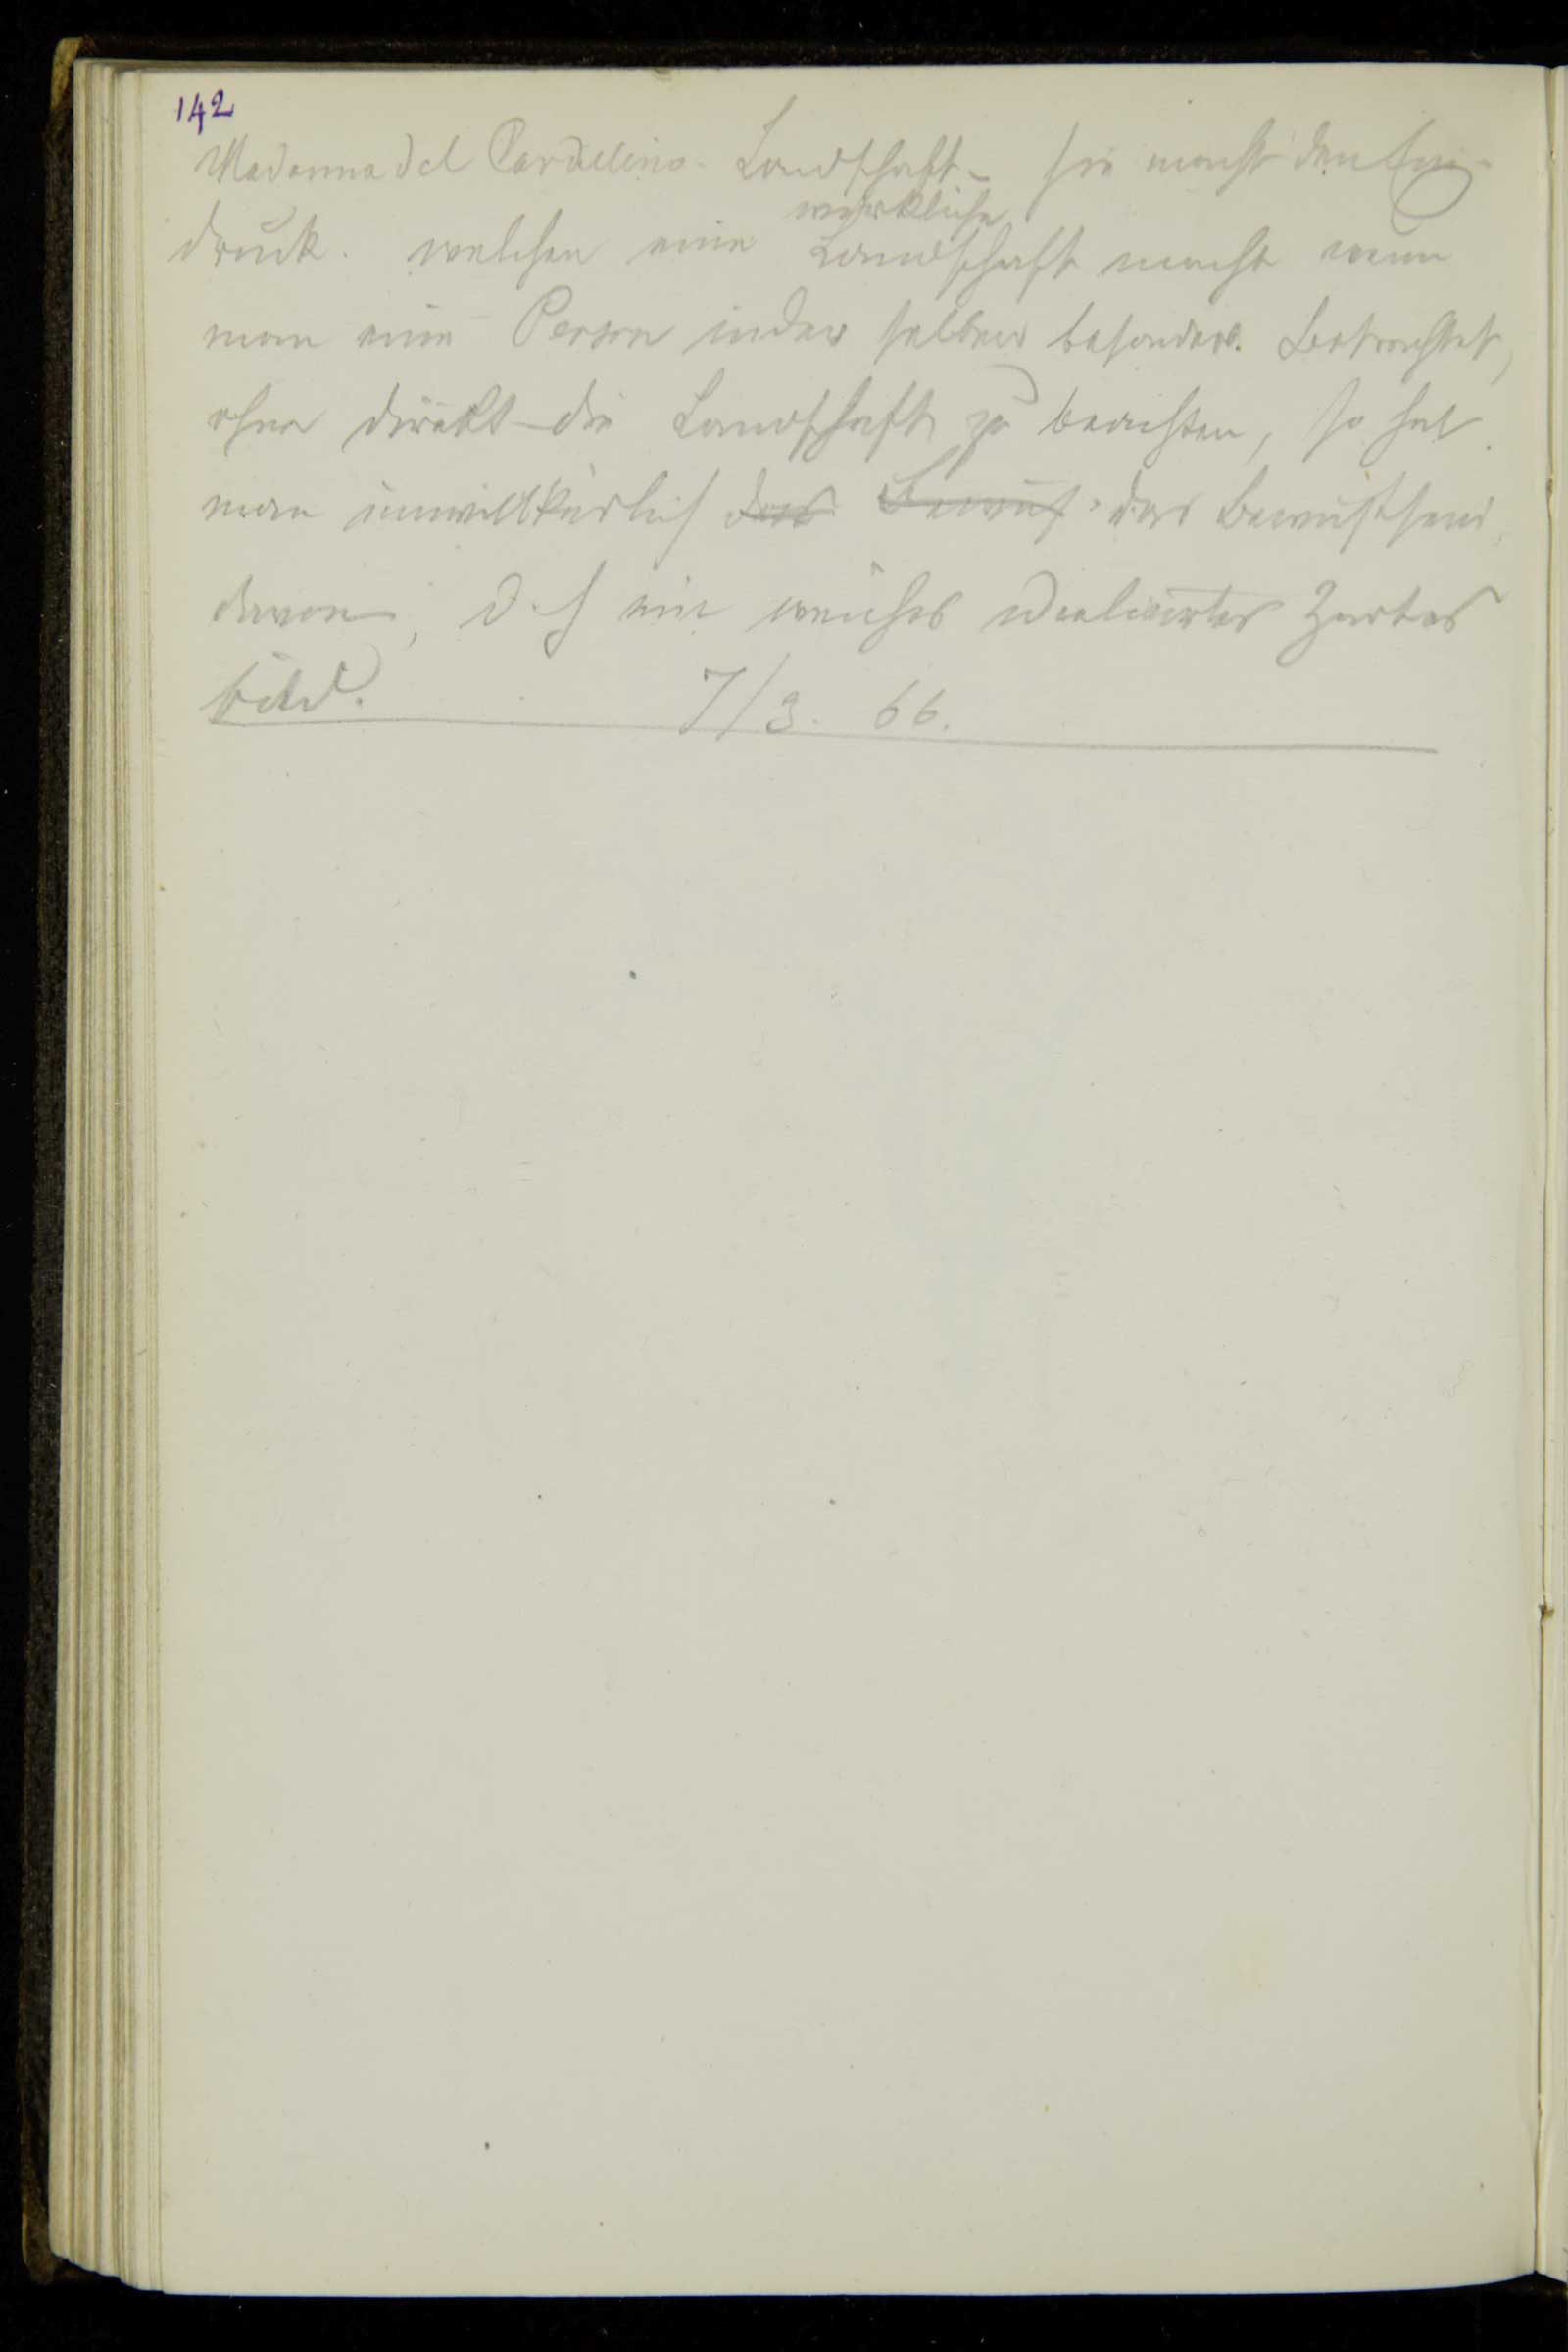 142
Madonna del Cardellino. Landschaft – sie macht den Ein-
druck. welchen eine wirkliche Landschaft macht wenn
man eine Person in der selben besonders. betrachtet,
ohne direkt die Landschaft zu beachten, so hat
man unwillkürlich das Bewuß das Bewußtsein
davon, d. h ein weiches idealisirtes zartes
bild. 7/3. 66.